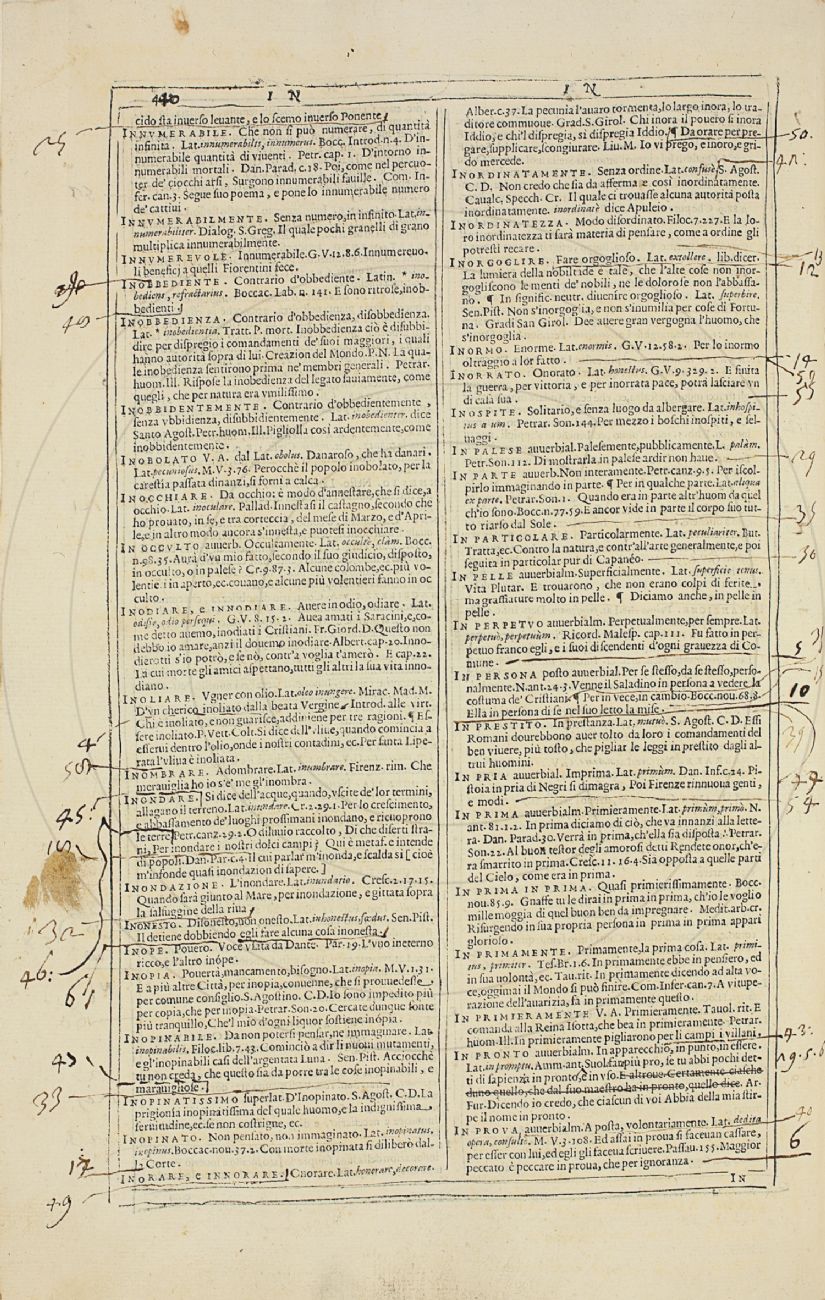 440
I N
I N
cido ſta inuerſo leuante, e lo ſcemo inuerſo Ponente
INNVMERABILE. Che non ſi può numerare, di quantità
infinita. Lat. innumerabilis, innumerus. Bocc. Introd. n. 4. D'in-
numerabile quantità di viuenti. Petr. cap. 1. D'intorno in-
numerabili mortali. Dan. Parad. c. 18. Poi, come nel percuo-
ter de' ciocchi arſi, Surgono innumerabili fauille. Com. In-
fer. can. 3. Segue ſuo poema, e pone lo innumerabile numero
de' cattiui.
INNVMERABILMENTE. Senza numero, in infinito. Lat. in-
numerabiliter. Dialog. S. Greg. Il quale pochi granelli di grano
multiplica innumerabilmente.
INNVMEREVOLE. Innumerabile. G. V. 12. 8. 6. Innumereuo-
li beneficj a quelli Fiorentini fece.
INOBBEDIENTE. Contrario d'obbediente. Latin. * ino-
bediens, refractarius. Boccac. Lab. n. 141. E ſono ritroſe, inob-
bedienti
INOBBEDIENZA. Contrario d'obbedienza, diſobbedienza.
Lat. * inobedientia. Tratt. P. mort. Inobbedienza ciò è diſubbi-
dire per diſpregio i comandamenti de' ſuoi maggiori, i quali
hanno autorità ſopra di lui. Creazion del Mondo. P. N. La qua-
le inobedienza ſentirono prima ne' membri generali. Petrar.
huom. Ill. Riſpoſe la inobedienza del legato ſauiamente, come
quegli, che per natura era vmiliſſimo.
INOBBIDENTEMENTE. Contrario d'obbedientemente,
ſenza vbbidienza, diſubbidientemente. Lat. inobedienter. dice
Santo Agoſt. Petr. huom. Ill. Piglioſſa così ardentemente, come
inobbidentemente.
INOBOLATO V. A. dal Lat. obolus. Danaroſo, che ha danari.
Lat. pecunioſus. M. V. 3. 76. Perocchè il popolo inobolato, per la
careſtia paſſata dinanzi, ſi forni a calca.
INOCCHIARE. Da occhio: è modo d'anneſtare, che ſi dice, a
occhio. Lat. inoculare. Pallad. Inneſtaſi il caſtagno, ſecondo che
ho prouato, in ſe, e tra corteccia, del meſe di Marzo, e d'Apri-
le, e in altro modo ancora s'inneſta, e puoteſi inocchiare.
IN OCCVLTO auuerb. Occultamente. Lat. occultè, clàm. Bocc.
n. 98. 35. Aurà d'vn mio fatto, ſecondo il ſuo giudicio, diſpoſto,
in occulto, o in paleſe? Cr. 9. 87. 3. Alcune colombe, ec. più vo-
lentie. i in aperto, ec. couano, e alcune più volentieri fanno in oc
culto.
INODIARE, E INNODIARE. Auere in odio, odiare. Lat.
odiſſe, odio perſequi. G. V. 8. 15. 2. Auea amati i Saracini, e, co-
me detto auemo, inodiati i Criſtiani. Fr. Giord. D. Queſto non
debbo io amare, anzi il douemo inodiare. Albert. cap. 20. Inno-
dierotti s'io potrò, e ſe nò, contr'a voglia t'amerò. E cap. 22.
La cui morte gli amici aſpettano, tutti gli altri la ſua vita inno-
diano.
INOLIARE. Vgner con olio. Lat. oleo inungere. Mirac. Mad. M.
D'vn cherico inoliato dalla beata Vergine. Introd. alle virt.
Chi è inoliato, e non guariſce, addiuiene per tre ragioni. ¶ Eſ-
ſere inoliato. P. Vett. Colt. Si dice dell'vliue, quando comincia a
eſſerui dentro l'olio, onde i noſtri contadini, ec. Per ſanta Lipe-
rata l'vliua è inoliata.
INOMBRARE. Adombrare. Lat. inumbrare. Firenz. rim. Che
merauiglia ho io s'e' me gl'inombra.
INONDARE. Si dice dell'acque, quando, vſcite de' lor termini,
allagano il terreno. Lat. inundare. Cr. 2. 29. 1. Per lo creſcimento,
e abbaſſamento de' luoghi proſſimani inondano, e ricuoprono
le terre. Petr. canz. 29. 2. O diluuio raccolto, Di che diſerti ſtra-
ni, Per inondare i noſtri dolci campi? Qui è metaf. e intende
di popoli. Dan. Par. c. 4. Il cui parlar m'inonda, e ſcalda sì [cioè
m'infonde quaſi inondazion di ſapere.]
INONDAZIONE. L'inondare. Lat. inundatio. Creſc. 2. 17. 15.
Quando ſarà giunto al Mare, per inondazione, e gittata ſopra
la ſalſuggine della riua
INONESTO. Diſoneſto, non oneſto. Lat. inhoneſtus. fœdus. Sen. Piſt.
Il detiene dobbiendo egli fare alcuna coſa inoneſta
INOPE. Pouero. Voce vſata da Dante. Par. 19. L'vno in eterno
ricco, e l'altro inòpe.
INOPIA. Pouertà, mancamento, biſogno. Lat. inopia. M. V. 1. 31.
E a più altre Città, per inopia, conuenne, che ſi prouuedeſſe
per comune conſiglio. S. Agoſtino. C. D. Io ſono impedito più
per copia, che per inopia. Petrar. Son. 20. Cercate dunque fonte
più tranquillo, Che'l mio d'ogni liquor ſoſtiene inòpia.
INOPINABILE. Da non poterſi penſar, ne immaginare. Lat.
inopinabilis, Filoc. lib. 7. 43. Cominciò a dir li nuoui mutamenti,
e gl'inopinabili caſi dell'argentata Luna. Sen. Piſt. Acciocchè
tu non creda, che queſto ſia da porre tra le coſe inopinabili, e
marauiglioſe.
INOPINATISSIMO ſuperlat. D'Inopinato. S. Agoſt. C. D. La
prigionſa inopinatiſſima del quale huomo, e la indigniſſima
ſeruitudine, ec. ſe non coſtrigne, ec.
INOPINATO. Non penſato, non immaginato. Lat. inopinatus,
inopinus. Boccac. nou. 37. 2. Con morte inopinata ſi diliberò dal-
la Corte.
INORARE, E INNORARE. Onorare. Lat. honorare, decorare.
Alber. c. 37. La pecunia l'auaro tormenta, lo largo inora, lo tra-
ditore commuoue. Grad. S. Girol. Chi inora il pouero ſi inora
Iddio, e chi'l diſpregia, sì diſpregia Iddio. ¶ Da orare per pre-
gare, ſupplicare, ſcongiurare. Liu. M. Io vi prego, e inoro, e gri-
do mercede.
INORDINATAMENTE. Senza ordine. Lat. confuſè, S. Agoſt.
C. D. Non credo che ſia da afferma e così inordinatamente.
Caualc, Specch. Cr. Il quale ci trouaſſe alcuna autorità poſta
inordinatamente. inordinatè dice Apuleio.
INORDINATEZZA. Modo diſordinato. Filoc. 7. 227. E la lo-
ro inordinatezza ti ſarà materia di penſare, come a ordine gli
potreſti recare.
INORGOGLIRE. Fare orgoglioſo. Lat. extollere. lib. dicer.
La lumiera della nobiltade è tale, che l'alte coſe non inor-
goglifcono le menti de' nobili, ne le doloroſe non l'abbaſſa-
no. ¶ In ſignific. neutr. diuenire orgoglioſo. Lat. ſuperbire.
Sen. Piſt. Non s'inorgoglia, e non s'inumilia per coſe di Fortu-
na. Gradi San Girol. Dee auere gran vergogna l'huomo, che
s'inorgoglia.
INORMO. Enorme. Lat. enormis. G. V. 12. 58. 2. Per lo inormo
oltraggio a lor fatto.
INORRATO. Onorato. Lat. honeſtus. G. V. 9. 329. 2. E finita
la guerra, per vittoria, e per inorrata pace, potrà laſciare vn
di caſa ſua.
INOSPITE. Solitario, e ſenza luogo da albergare. Lat. inhoſpi-
tus a um. Petrar. Son. 144. Per mezzo i boſchi inoſpiti, e ſel-
uaggi.
IN PALESE auuerbial. Paleſemente, pubblicamente. L. palàm.
Petr. Son. 112. Di moſtrarla in paleſe ardir non haue.
IN PARTE auuerb. Non interamente. Petr. canz. 9. 5. Per iſcol-
pirlo immaginando in parte. ¶ Per in qualche parte. Lat. aliqua
ex parte. Petrar. Son. 1. Quando era in parte altr'huom da quel
ch'io ſono. Bocc. n. 77. 59. E ancor vide in parte il corpo ſuo tut-
to riarſo dal Sole.
IN PARTICOLARE. Particolarmente. Lat. peculiariter. But.
Tratta, ec. Contro la natura, e contr'all'arte generalmente, e poi
ſeguita in particolar pur di Capanèo.
IN PELLE auuerbialm. Superficialmente. Lat. ſuperficie tenus.
Vita Plutar. E trouarono, che non erano colpi di ferite
ma graffiature molto in pelle. ¶ Diciamo anche, in pelle in
pelle.
IN PERPETVO auuerbialm. Perpetualmente, per ſempre. Lat.
perpetuò, perpetuùm. Ricord. Maleſp. cap. 111. Fu fatto in per-
petuo franco egli, e i ſuoi diſcendenti d'ogni grauezza di Co-
mune.
IN PERSONA poſto auuerbial. Per ſe ſteſſo, da ſe ſteſſo, perſo-
nalmente. N. ant. 24. 3. Venne il Saladino in perſona a vedere la
coſtuma de' Criſtiani. ¶ Per in vece, in cambio. Bocc. nou. 68. 8.
Ella in perſona di ſe nel ſuo letto la miſe.
IN PRESTITO. In preſtanza. Lat. mutuò. S. Agoſt. C. D. Eſſi
Romani dourebbono auer tolto da loro i comandamenti del
ben viuere, più toſto, che pigliar le leggi in preſtito dagli al-
trui huomini.
IN PRIA auuerbial. Imprima. Lat. primùm. Dan. Inf. c. 24. Pi-
ſtoia in pria di Negri ſi dimagra, Poi Firenze rinnuoua genti,
e modi.
IN PRIMA auuerbialm. Primieramente. Lat. primùm, primò. N.
ant. 81. 1. 2. In prima diciamo di ciò, che va innanzi alla lette-
ra. Dan. Parad. 30. Verrà in prima, ch'ella ſia diſpoſta. Petrar.
Son. 22. Al buon teſtor degli amoroſi detti Rendete onor, ch'e-
ra ſmarrito in prima. Creſc. 11. 16. 4. Sia oppoſta a quelle parti
del Cielo, come era in prima.
IN PRIMA IN PRIMA. Quaſi primieriſſimamente. Bocc.
nou. 85. 9. Gnaffe tu le dirai in prima in prima, ch'io le voglio
mille moggia di quel buon ben da impregnare. Medit. arb. cr.
Riſurgendo in ſua propria perſona in prima in prima apparì
glorioſo.
IN PRIMAMENTE. Primamente, la prima coſa. Lat. primi-
tus, primiter. Teſ. Br. 1. 6. In primamente ebbe in penſiero, ed
in ſua uolontà, ec. Tau. rit. In primamente dicendo ad alta vo-
ce, oggimai il Mondo ſi può finire. Com. Infer. can. 7. A vitupe-
razione dell'auarizia, fa in primamente queſto.
IN PRIMIERAMENTE V. A. Primieramente. Tauol. rit. E
comanda alla Reina Iſotta, che bea in primieramente. Petrar.
huom. Ill. In primamente pigliarono per li campi i villani,
IN PRONTO auuerbialm. In apparecchio, in punto, in eſſere.
Lat. in promptu. Amm. ant. Suol far più prò, ſe tu abbi pochi det-
ti di ſapienza in pronto, e in vſo. E altroue. Certamente ciaſche
duno quello, che dal ſuo maeſtro ha in pronto, quello dice. Ar.
Fur. Dicendo io credo, che ciaſcun di voi Abbia della mia ſtir-
pe il nome in pronto.
IN PROVA, auuerbialm. A poſta, volontariamente. Lat. dedita
opera, conſultò. M. V. 3. 108. Ed aſſai in proua ſi faceuan caſſare,
per eſſer con lui, ed egli gli faceua ſcriuere. Paſſau. 155. Maggior
peccato è peccare in proua, che per ignoranza.
IN
25
40
4
50
45
32
46
61
43
33
17
49
50
42
12
14
55
29
35
36
5
10
39
44
54
43
19. 5. 6
40
6